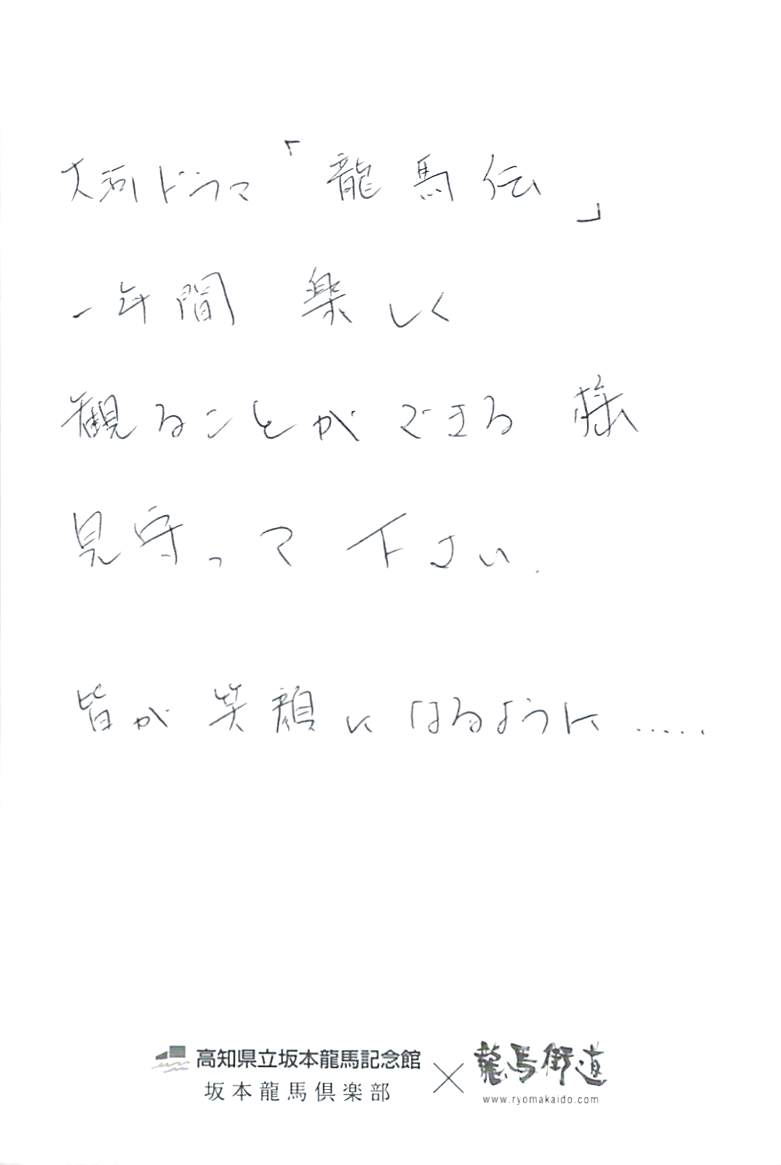 大河ドラマ「龍馬伝」
一年間 楽しく
観ることができる 様
見守って 下さい.
皆が 笑顔に なるように .....
高知県立坂本龍馬記念館
坂本龍馬倶楽部
×
龍馬街道
www.ryomakaido.com